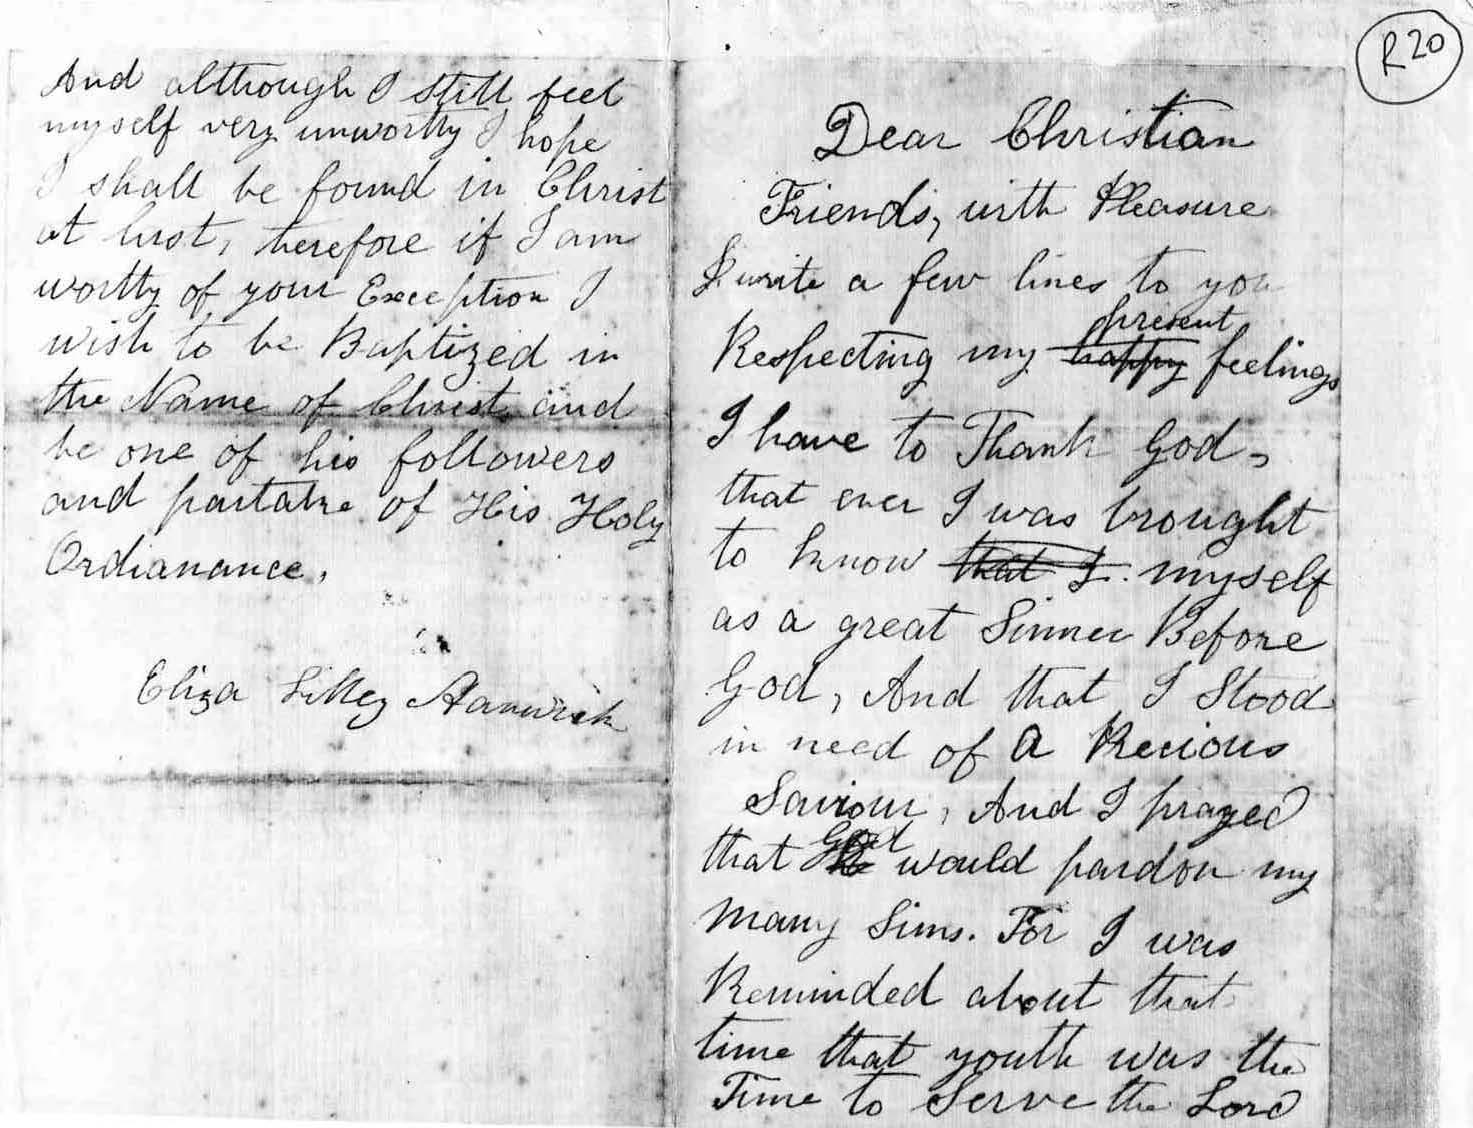 R20
Dear Christian
Friends, with Pleasure
I write a few lines to you
present
Respecting my happy feelings
I have to Thank God,
that ever I was brought
to know that I myself
as a great Sinner Before
God, And that I Stood
in need of a Recious
Saviour, And I prayed
God
that would pardon my
many Sins. For I was
Reminded about that
time that youth was the
Time to Serve the Lord
And although I still feel
myself very unworthy I hope
I shall be found in Christ
at last, therefore if I am
worthy of your Exception I
wish to be Baptized in
the Name of Christ and
be one of his followers
and partake of His Holy
Ordianance,
Eliza Lilley